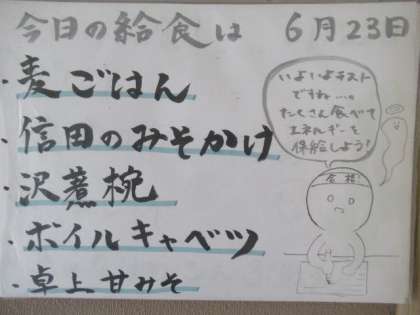 今日の給食は 6月23日
・麦ごはん
・信田のみそかけ
・沢煮椀
・ボイルキャベツ
・卓上甘みそ
いよいよテスト
ですね…。
たくさん食べて
エネルギーを
保給しよう!
合格